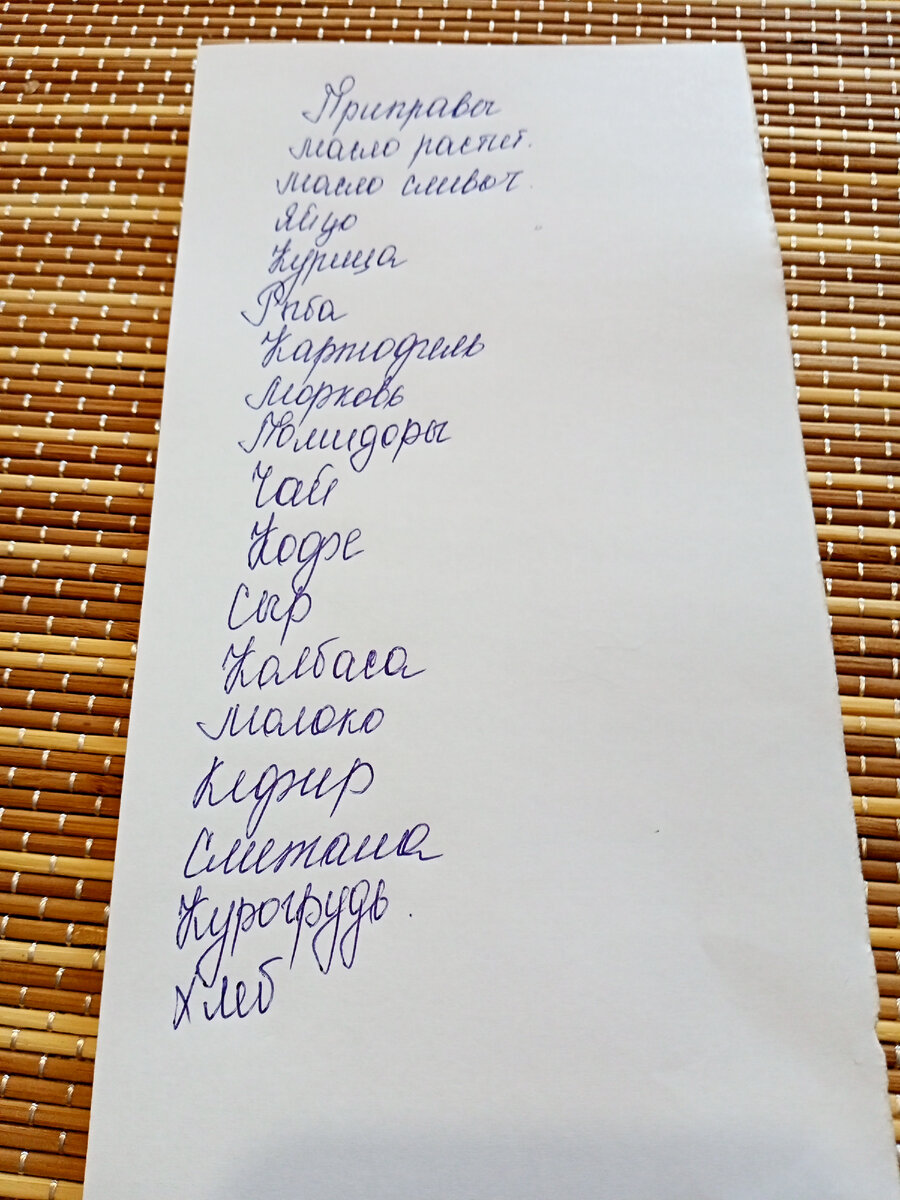 Приправы
масло растит.
масло сливоч.
яйцо
Курица
Рыба
Картофель
Морковь
Помидоры
Чай
Кофе
Сыр
Колбаса
Молоко
Кефир
Сметана
Курогрудь.
Хлеб